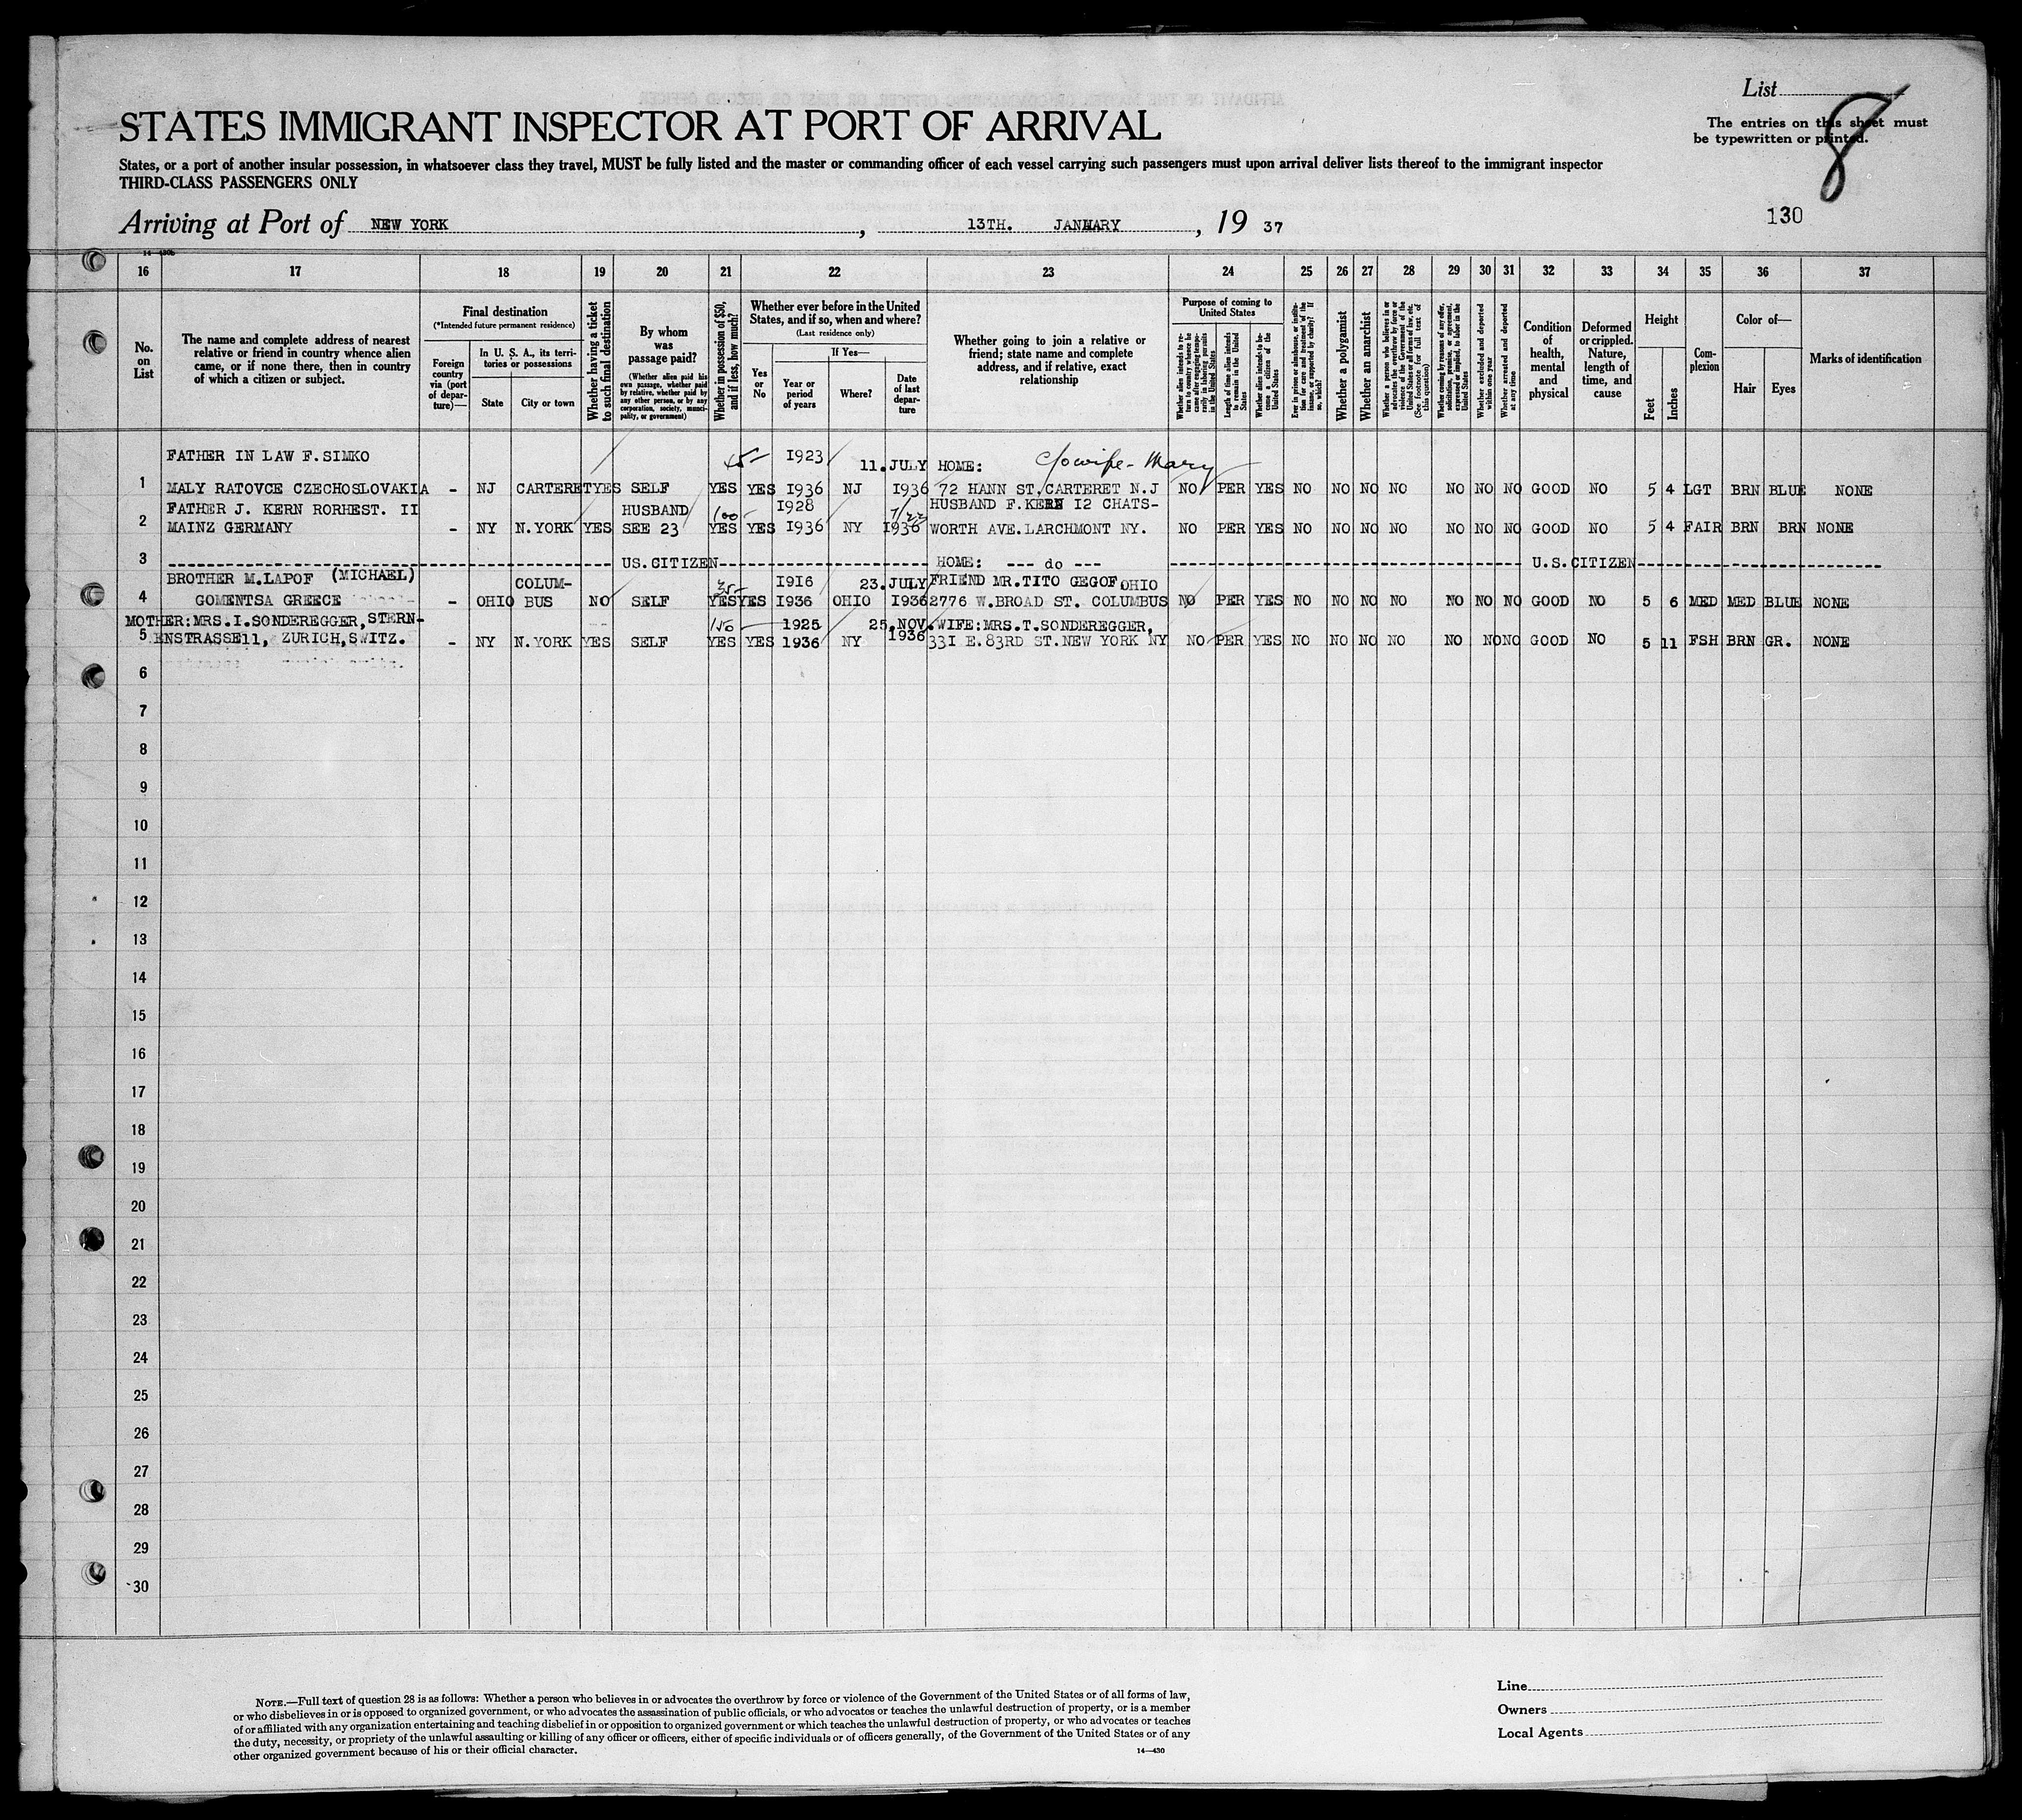 List
8
The entries on this sheet must
be typewritten or printed.
STATES IMMIGRANT INSPECTOR AT PORT OF ARRIVAL
States, or a port of another insular possession, in whatsoever class they travel, MUST be fully listed and the master or commanding officer of each vessel carrying such passengers must upon arrival deliver lists thereof to the immigrant inspector
THIRD-CLASS PASSENGERS ONLY
130
Arriving at Port of NEW YORK, 13TH. JANUARY, 19 37
14 430b
16 17 18 19 20 21 22 23 24 25 26 27 28 29 30 31 32 33 34 35 36 37
No. on List
The name and complete address of nearest
relative or friend in country whence alien
came, or if none there, then in country
of which a citizen or subject.
Final destination
(*Intended future permanent residence)
Foreign country via (port of departure)—
In U. S. A., its territories or possessions
State
City or town
Whether having a ticket to such final destination
By whom was passage paid?
(Whether alien paid his own passage, whether paid by relative, whether paid by any other person, or by any corporation, society, municipality, or government)
Whether in possession of $50, and if less, how much?
Whether ever before in the United
States, and if so, when and where?
(Last residence only)
Yes or No
If Yes—
Year or period of years
Where?
Date of last departure
Whether going to join a relative or
friend; state name and complete
address, and if relative, exact
relationship
Purpose of coming to United States
Whether alien intends to return to country whence he came after engaging temporarily in laboring pursuits in the United States
Length of time alien intends to remain in the United States
Whether alien intends to become a citizen of the United States
Ever in prison or almshouse, or institution for care and treatment of the insane, or supported by charity? If so, which?
Whether a polygamist
Whether an anarchist
Whether a person who believes in or advocates the overthrow by force or violence of the Government of the United States or all forms of law, etc. (See footnote for full text of this question)
Whether coming by reasons of any offer, solicitation, promise, or agreement, expressed or implied, to labor in the United States
Whether excluded and deported within one year
Whether arrested and deported at any time
Condition of health, mental and physical
Deformed or crippled. Nature, length of time, and cause
Height
Feet
Inches
Complexion
Color of—
Hair
Eyes
Marks of identification
FATHER IN LAW F.SIMKO 1923 11.JULY HOME: c/o wife - Mary
1 MALY RATOVCE CZECHOSLOVAKIA - NJ CARTERET YES SELF YES YES 1936 NJ 1936 72 HANN ST,CARTERET N.J NO PER YES NO NO NO NO NO NO NO GOOD NO 5 4 LGT BRN BLUE NONE
FATHER J. KERN RORHEST. II HUSBAND 100- 1928 7/23 HUSBAND F.KERN 12 CHATS-
2 MAINZ GERMANY - NY N.YORK YES SEE 23 YES YES 1936 NY 1936 WORTH AVE.LARCHMONT NY. NO PER YES NO NO NO NO NO NO NO GOOD NO 5 4 FAIR BRN BRN NONE
3 US.CITIZEN HOME: --- do --- U.S.CITIZEN
BROTHER M.LAPOF (MICHAEL) COLUM- 35- 1916 23.JULY FRIEND MR.TITO GEGOF OHIO
4 GOMENTSA GREECE - OHIO BUS NO SELF YES YES 1936 OHIO 1936 2776 W.BROAD ST. COLUMBUS NO PER YES NO NO NO NO NO NO NO GOOD NO 5 6 MED MED BLUE NONE
MOTHER:MRS.I.SONDEREGGER,STERN- 150 1925 25.NOV. WIFE:MRS.T.SONDEREGGER,
5 ENSTRASSE11, ZURICH,SWITZ. - NY N.YORK YES SELF YES YES 1936 NY 1936 331 E.83RD ST.NEW YORK NY NO PER YES NO NO NO NO NO NO NO GOOD NO 5 11 FSH BRN GR. NONE
6
7
8
9
10
11
12
13
14
15
16
17
18
19
20
21
22
23
24
25
26
27
28
29
30
NOTE.—Full text of question 28 is as follows: Whether a person who believes in or advocates the overthrow by force or violence of the Government of the United States or of all forms of law,
or who disbelieves in or is opposed to organized government, or who advocates the assassination of public officials, or who advocates or teaches the unlawful destruction of property, or is a member
of or affiliated with any organization entertaining and teaching disbelief in or opposition to organized government or which teaches the unlawful destruction of property, or who advocates or teaches
the duty, necessity, or propriety of the unlawful assaulting or killing of any officer or officers, either of specific individuals or of officers generally, of the Government of the United States or of any
other organized government because of his or their official character.
14—430
Line
Owners
Local Agents